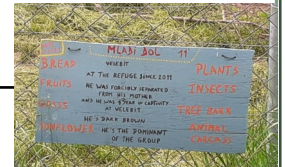 MLADI DOL 11
BREAD
FRUITS
VELEBIT
AT THE REFUGE SINCE 2011
HE WAS FORCIBLY SEPARATED
FROM HIS MOTHER
AND HE WAS
IN CAPTIVITY
AT VELEBIT
HE'S DARK BROWN
HE'S THE DOMINANT
OF THE GROUP
PLANTS
INSECTS
TREE BARK
ANIMAL
CARCASS